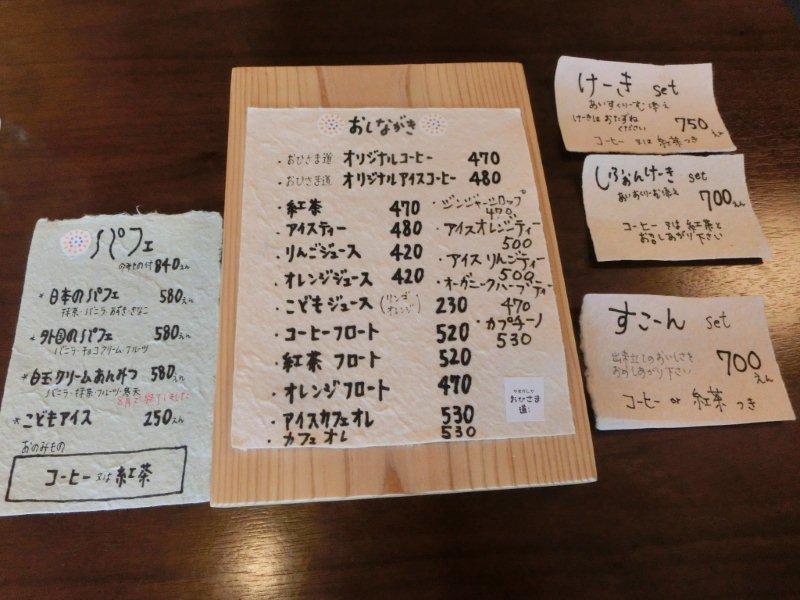 パフェ
のみもの付 840えん
*日本のパフェ 580えん
抹茶・バニラ・あずき・きなこ
*外国のパフェ 580えん
バニラ・チョコアイスクリーム・フルーツ
*白玉クリームあんみつ 580えん
バニラ・抹茶・フルーツ・寒天
8月で終了しました
*こどもアイス 250えん
おのみもの
コーヒー 又は 紅茶
おしながき
・おひさま道 オリジナルコーヒー 470
・おひさま道 オリジナルアイスコーヒー 480
・紅茶 470
・アイスティー 480
・りんごジュース 420
・オレンジジュース 420
・こどもジュース (リンゴ オレンジ) 230
・コーヒーフロート 520
・紅茶 フロート 520
・オレンジフロート 470
・アイスカフェオレ 530
・カフェオレ 530
・ジンジャーシロップ
470
・アイスオレンジティー
500
・アイスリンゴティー
500
・オーガニックハーブティー
470
・カプチーノ
530
おひさま
道
けーき set
あいすくりーむ添え
けーきはおたずね
ください
750えん
コーヒー 又は 紅茶つき
しふぉんけーき set
あいすくりーむ添え
700えん
コーヒー 又は 紅茶と
お召しあがり下さい
すこーん set
出来立てのおいしさを
おめしあがり下さい
700えん
コーヒー or 紅茶 つき